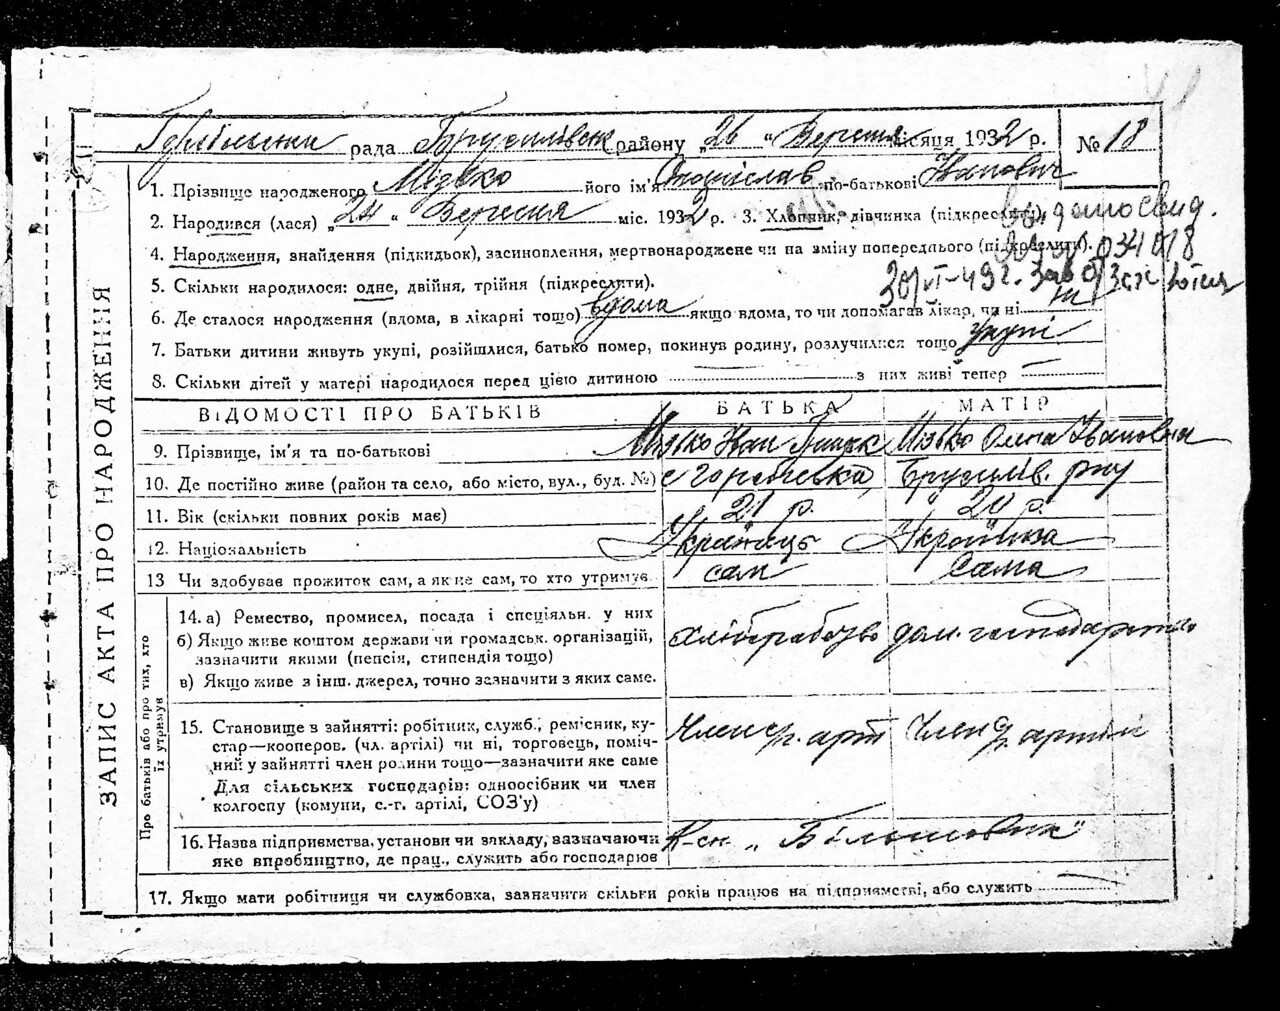 рада Брусилівськ району „26 “ Березня місяця 1932 р.
№ 18
1. Прізвище народженого Мізько його ім'я Станіслав по-батькові Іванович
2. Народився (лася) „24 “ Березня міс. 1932 р. 3. Хлопчик, дівчинка (підкреслити).
видано свид.
4. Народження, знайдення (підкидьок), засиновлення, мертвонароджене чи на зміну попереднього (підкреслити).
034018
5. Скільки народилося: одне, двійня, трійня (підкреслити).
30/VI-49 г.
6. Де сталося народження (вдома, в лікарні тощо) вдома якщо вдома, то чи допомагав лікар, чи ні ні
7. Батьки дитини живуть укупі, розійшлися, батько помер, покинув родину, розлучилися тощо укупі
8. Скільки дітей у матері народилося перед цією дитиною — з них живі тепер —
ЗАПИС АКТА ПРО НАРОДЖЕННЯ
ВІДОМОСТІ ПРО БАТЬКІВ БАТЬКА МАТІР
9. Прізвище, ім'я та по-батькові Мізько Іван Мізько Олена Івановна
10. Де постійно живе (район та село, або місто, вул., буд. №) с Горобіевка, Брусилів. р-ну
11. Вік (скільки повних років має) 21 р. 20 р.
12. Національність Українець Українка
13 Чи здобував прожиток сам, а як не сам, то хто утримує сам сама
Про батьків або про тих, хто їх утримує
14. а) Ремество, промисел, посада і спеціяльн. у них
б) Якщо живе коштом держави чи громадськ. організацій,
зазначити якими (пенсія, стипендія тощо)
хліборобство дом. господарство
в) Якщо живе з інш. джерел, точно зазначити з яких саме.
15. Становище в зайнятті: робітник, служб., ремісник, ку-
стар—кооперов. (чл. артілі) чи ні, торговець, поміч-
ний у зайнятті член родини тощо—зазначити яке саме
Член с/г. арт Член с/г. артілі
Для сільських господарів: одноосібник чи член
колгоспу (комуни, с.-г. артілі, СОЗ'у)
16. Назва підприємства, установи чи закладу, зазначаючи
яке виробництво, де прац., служить або господарює
К-сп „Більшовик“
17. Якщо мати робітниця чи службовка, зазначити скільки років працює на підприємстві, або служить —